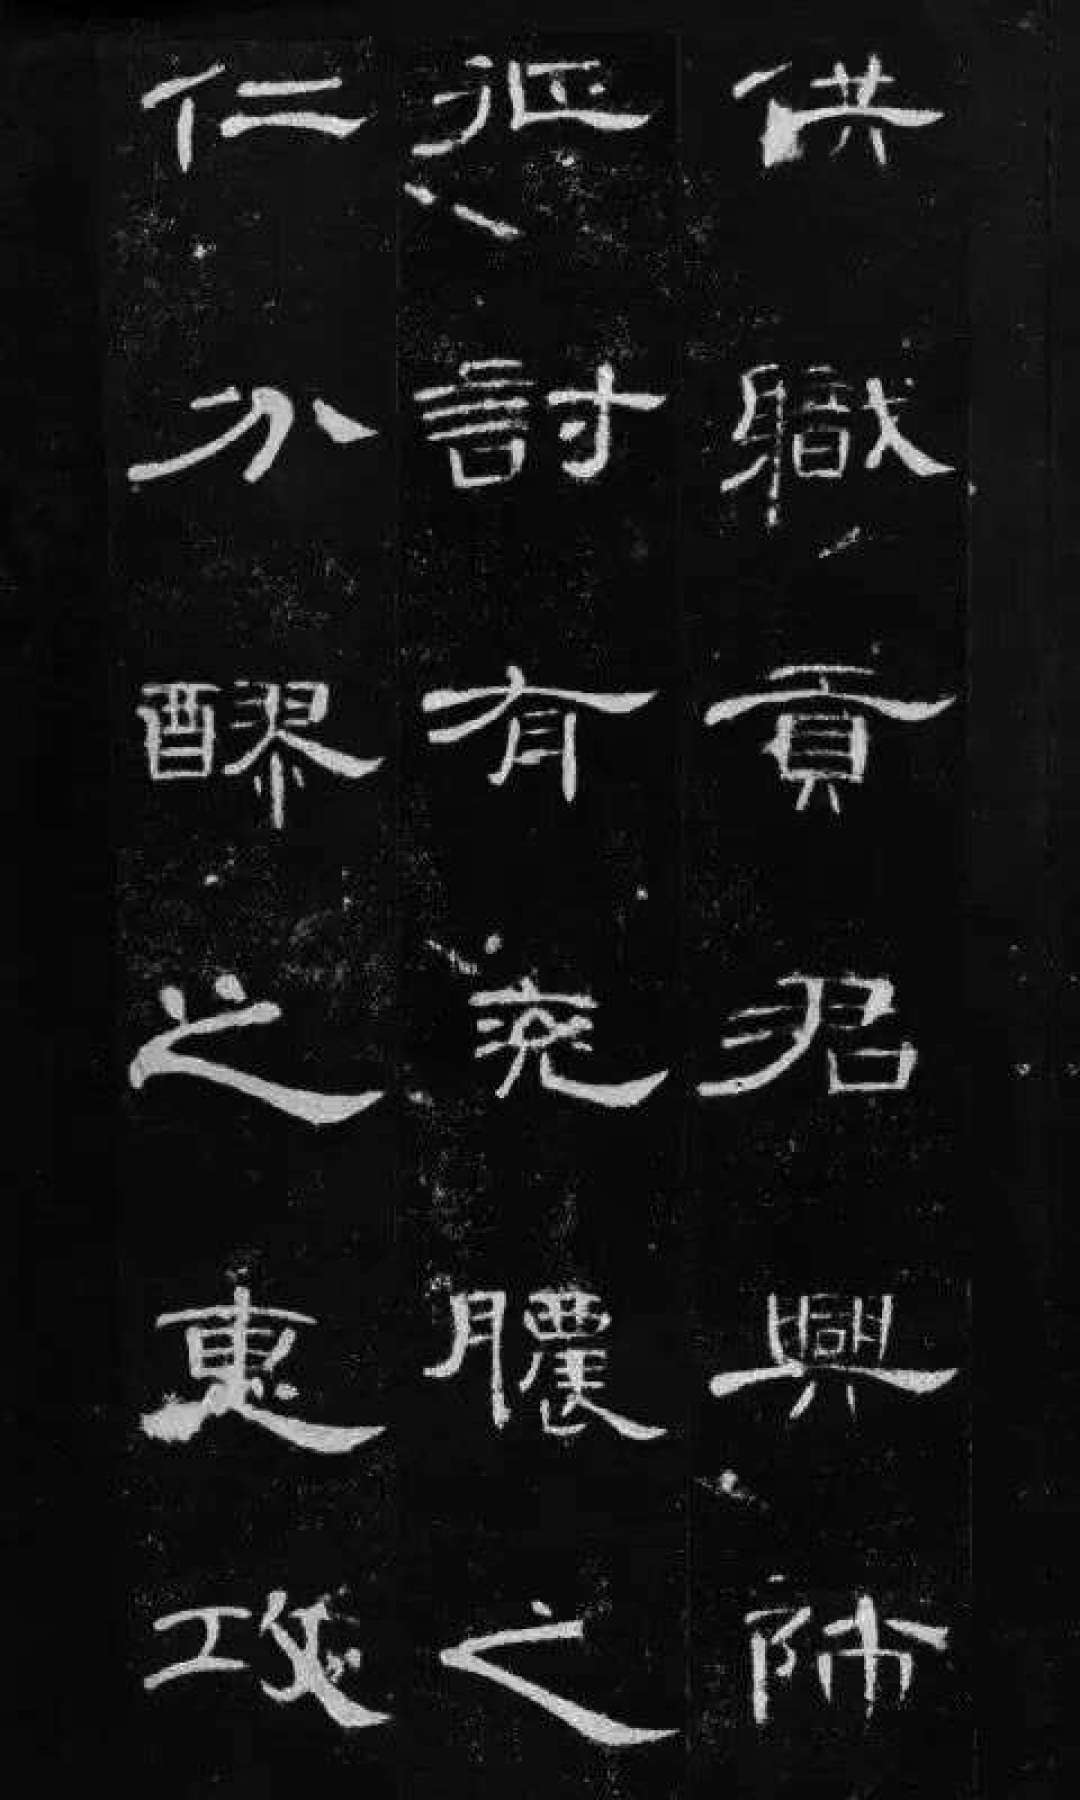 供職貢君興師
征討有兗膿之
仁分醪之惠攻